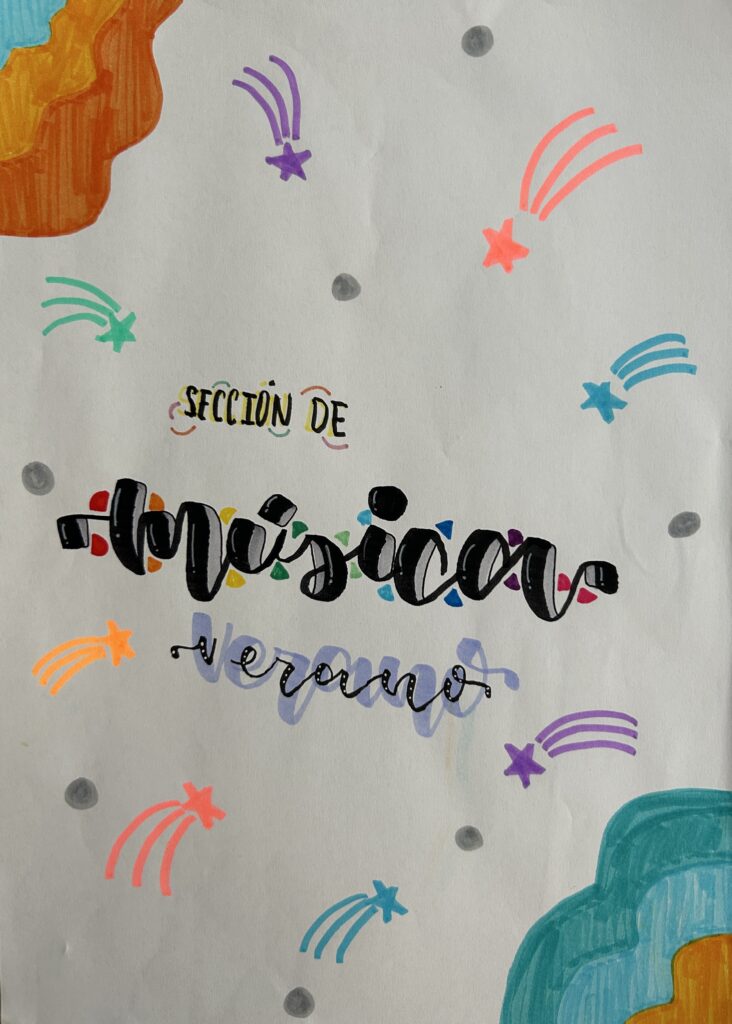 SECCIÓN DE
música
verano